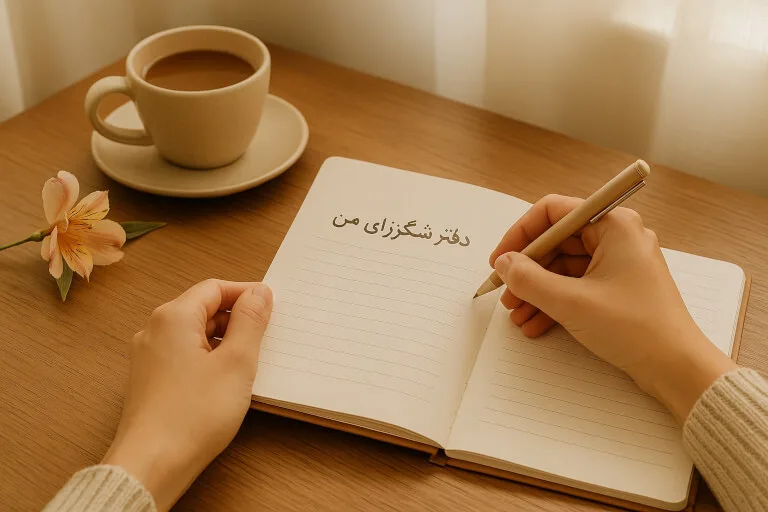 دفتر شگززای من